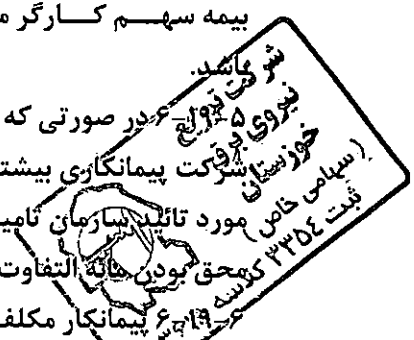 بیمه سهم کارگر
باشد.
در صورتی که
شرکت پیمانکاری بیشتر
مورد تائید سازمان تامین
محق بودن مابه التفاوت
۶-۱۹-۶ پیمانکار مکلف
شرکت توزیع
نیروی برق
خوزستان
(سهامی خاص)
ثبت ۳۳۵۴ کلاسه